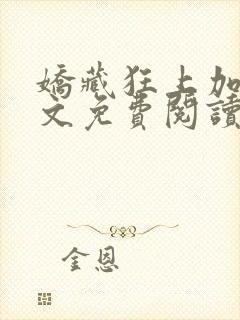 嬌藏狂上加
文免費閱讀
金恩